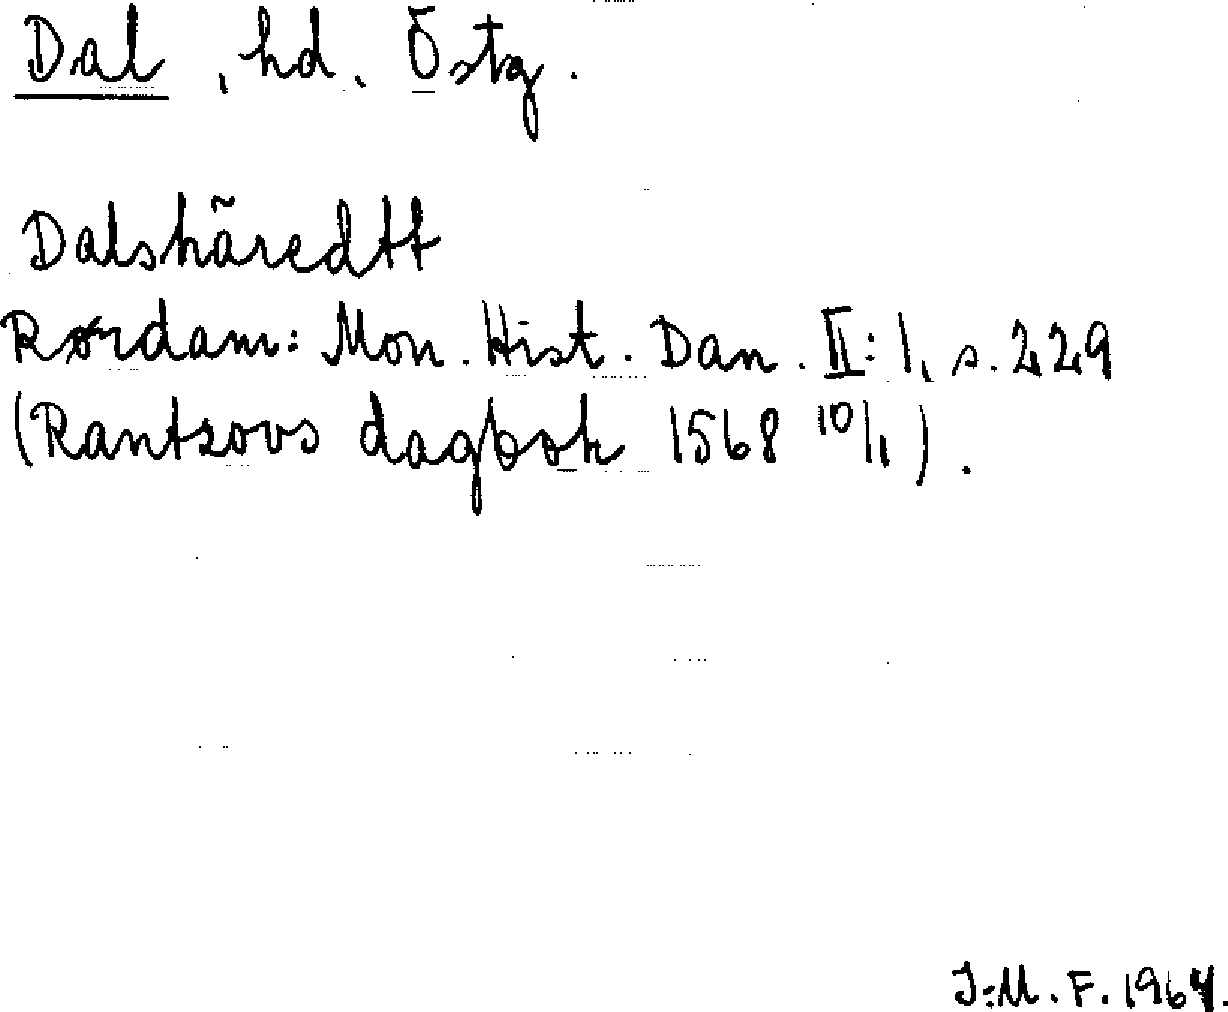 Dal, hd. Östg.
Dalshäredtt
Rørdam: Mon. Hist. Dan. II:1, s. 229
(Rantzovs dagbok 1568 10/1).
I:M. F. 1964.